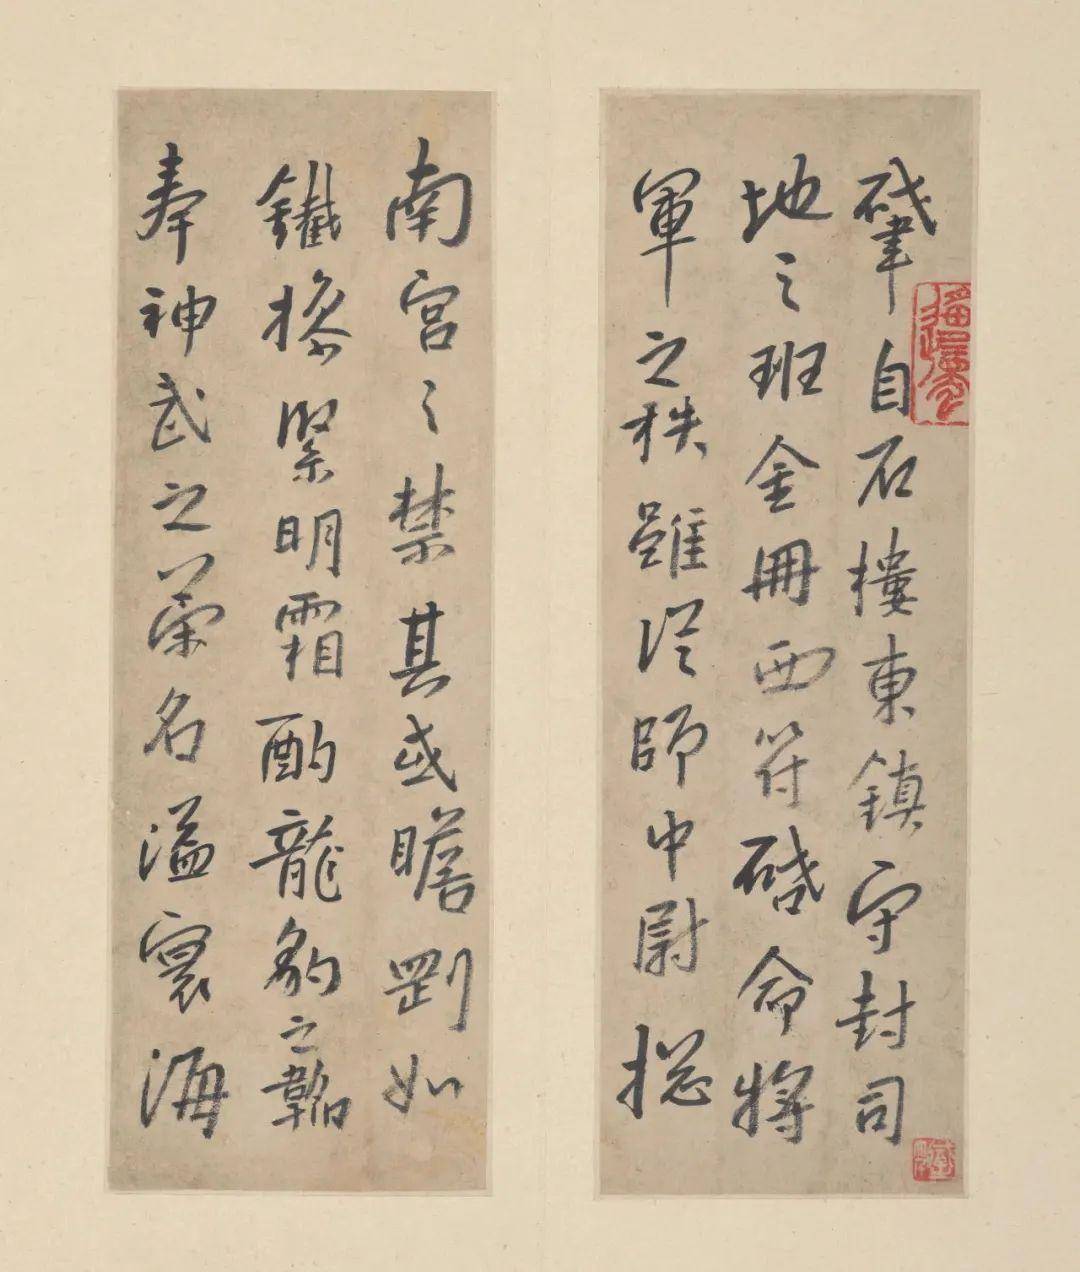 肇自石樓東鎮守封司
地之班金冊西符啓命將
軍之秩雖從師中尉揔
南宮之禁其或瞻劉如
鐵操緊明霜酌龍豹之韜
奉神武之榮名溢寰海